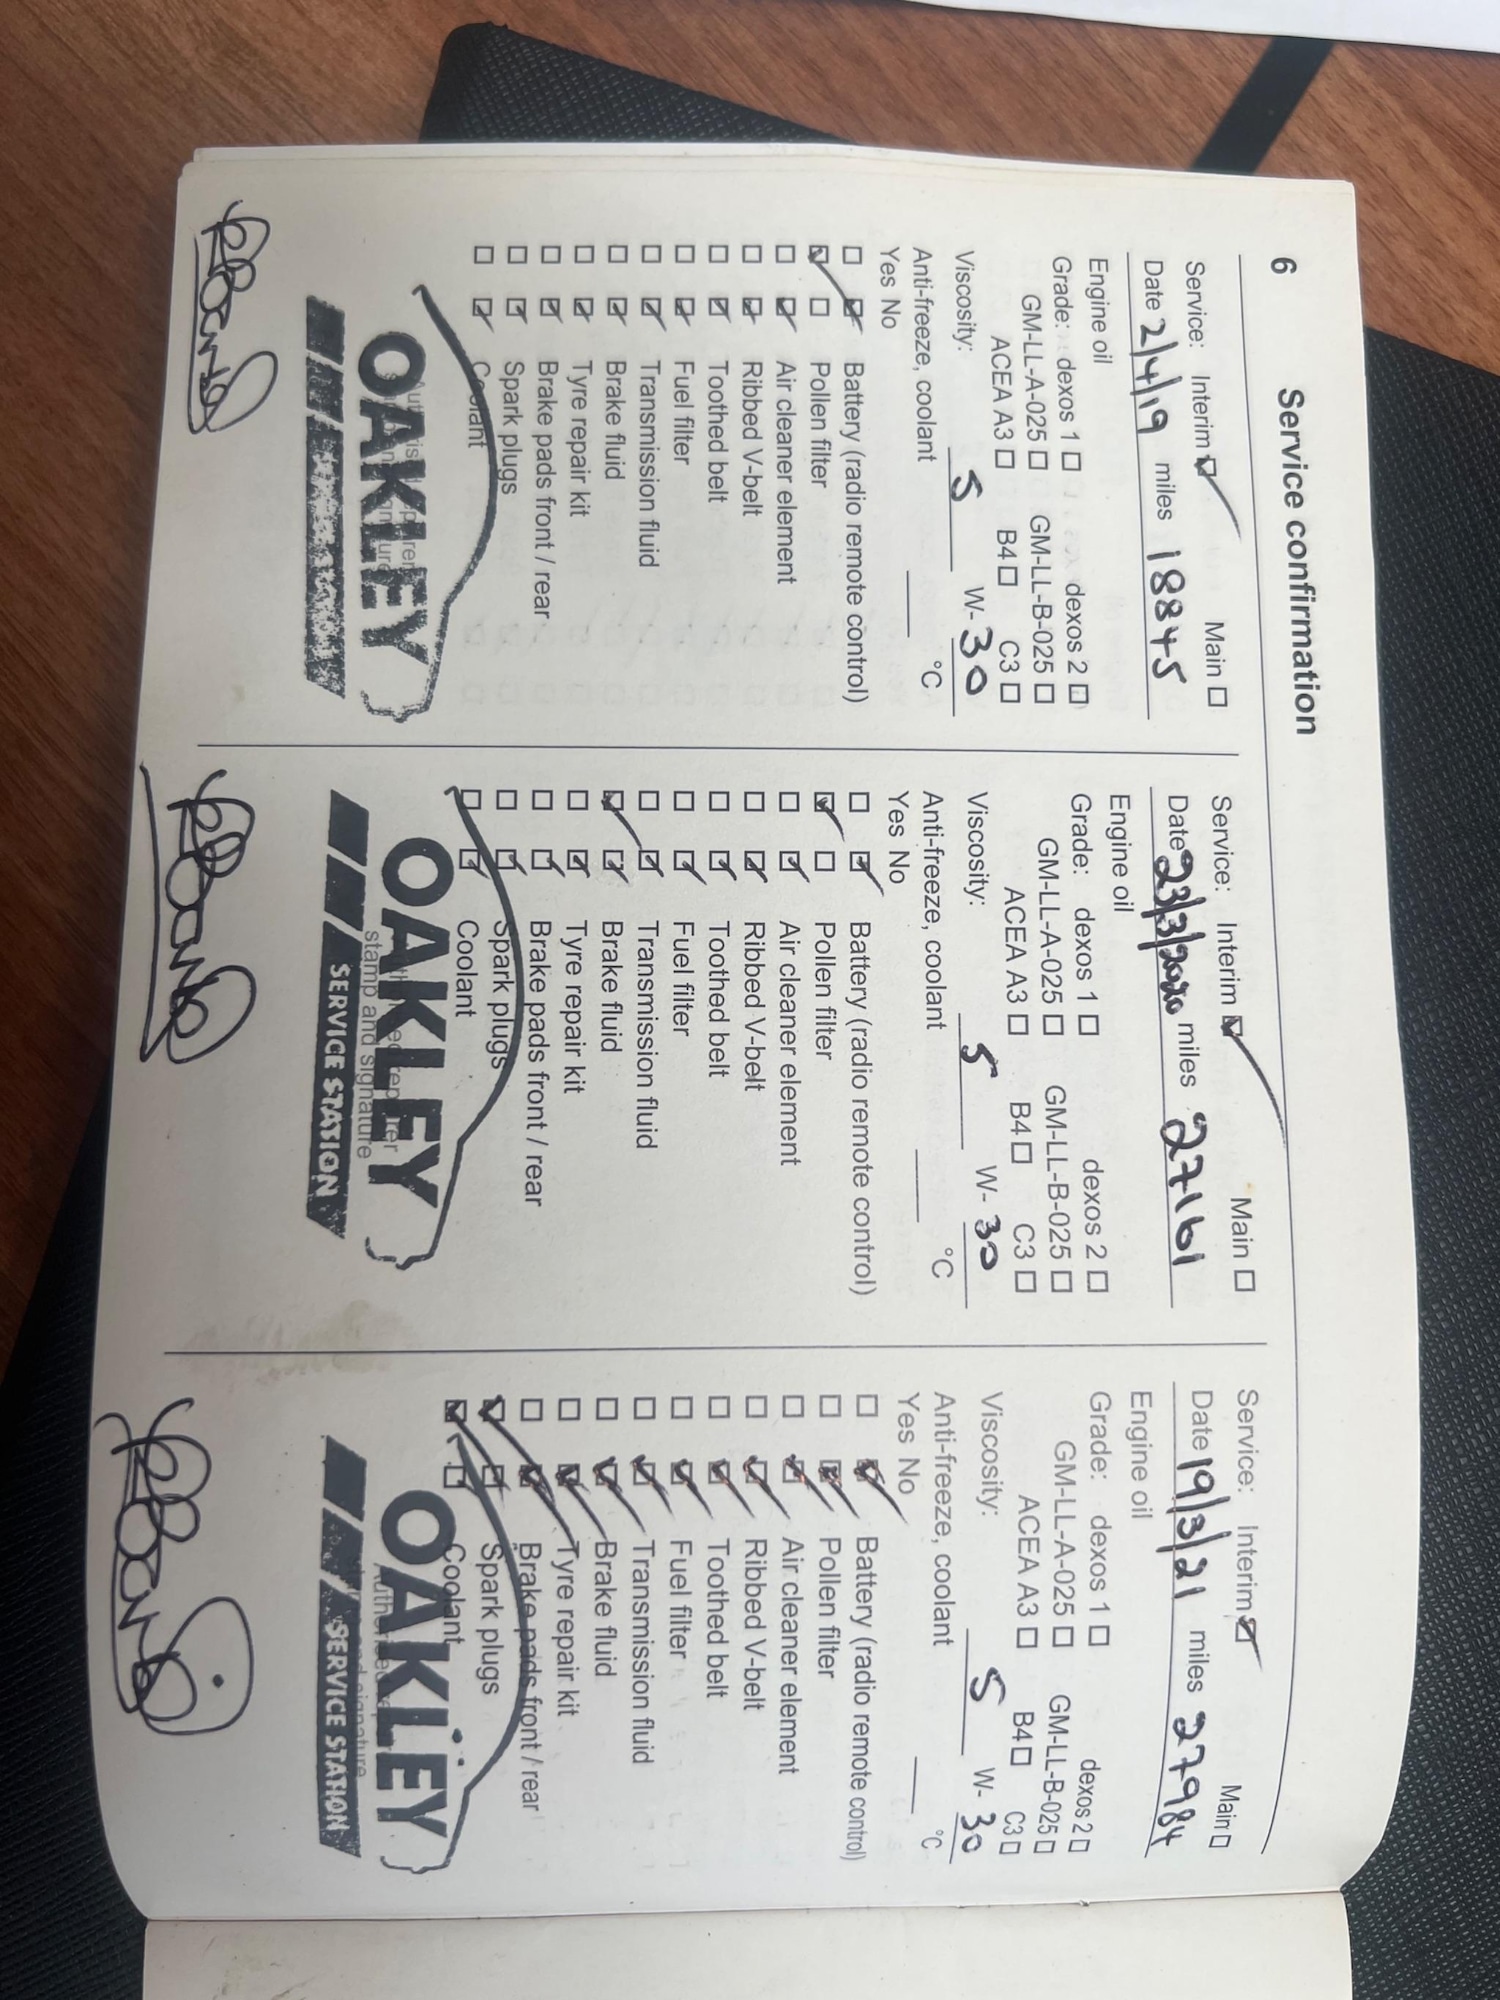 6 Service confirmation
Service: Interim ☑ Main ☐
Date 2/4/19 miles 18845
Engine oil
Grade: dexos 1 ☐ dexos 2 ☐
GM-LL-A-025 ☐ GM-LL-B-025 ☐
ACEA A3 ☐ B4 ☐ C3 ☐
Viscosity: 5 W- 30
Anti-freeze, coolant °C
Yes No
☐ ☑ Battery (radio remote control)
☑ ☐ Pollen filter
☐ ☑ Air cleaner element
☐ ☑ Ribbed V-belt
☐ ☑ Toothed belt
☐ ☑ Fuel filter
☐ ☑ Transmission fluid
☐ ☑ Brake fluid
☐ ☑ Tyre repair kit
☐ ☑ Brake pads front / rear
☐ ☑ Spark plugs
☐ ☑ Coolant
OAKLEY
Service: Interim ☑ Main ☐
Date 23/3/2020 miles 27161
Engine oil
Grade: dexos 1 ☐ dexos 2 ☐
GM-LL-A-025 ☐ GM-LL-B-025 ☐
ACEA A3 ☐ B4 ☐ C3 ☐
Viscosity: 5 W- 30
Anti-freeze, coolant °C
Yes No
☐ ☑ Battery (radio remote control)
☑ ☐ Pollen filter
☐ ☑ Air cleaner element
☐ ☑ Ribbed V-belt
☐ ☑ Toothed belt
☐ ☑ Fuel filter
☐ ☑ Transmission fluid
☑ ☑ Brake fluid
☐ ☑ Tyre repair kit
☐ ☑ Brake pads front / rear
☐ ☑ Spark plugs
☐ ☑ Coolant
OAKLEY
stamp and signature
SERVICE STATION
Service: Interim ☑ Main ☐
Date 19/3/21 miles 27984
Engine oil
Grade: dexos 1 ☐ dexos 2 ☐
GM-LL-A-025 ☐ GM-LL-B-025 ☐
ACEA A3 ☐ B4 ☐ C3 ☐
Viscosity: 5 W- 30
Anti-freeze, coolant °C
Yes No
☐ ☑ Battery (radio remote control)
☐ ☑ Pollen filter
☐ ☑ Air cleaner element
☐ ☑ Ribbed V-belt
☐ ☑ Toothed belt
☐ ☑ Fuel filter
☐ ☑ Transmission fluid
☐ ☑ Brake fluid
☐ ☑ Tyre repair kit
☐ ☑ Brake pads front / rear
☑ ☐ Spark plugs
☑ ☐ Coolant
OAKLEY
SERVICE STATION